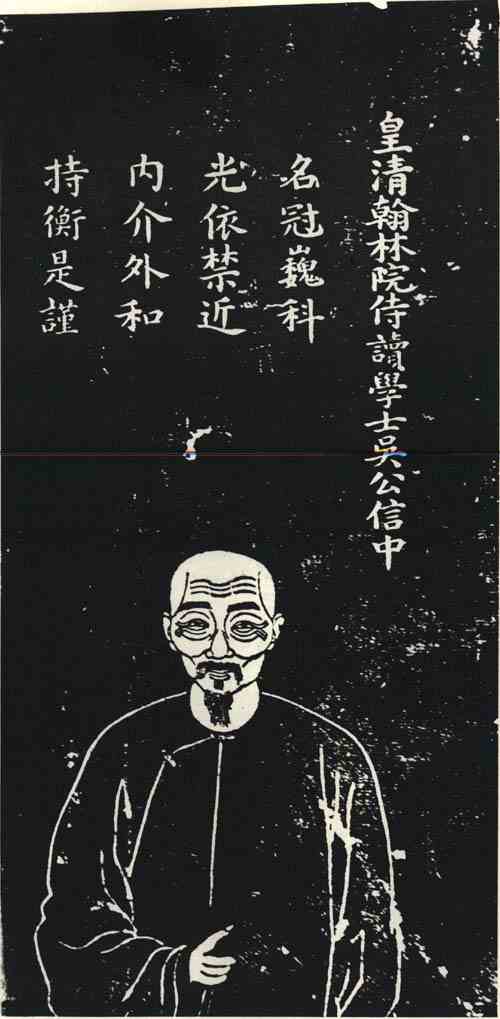 皇清翰林院侍讀學士吳公信中
名冠巍科
光依禁近
內介外和
持衡是謹